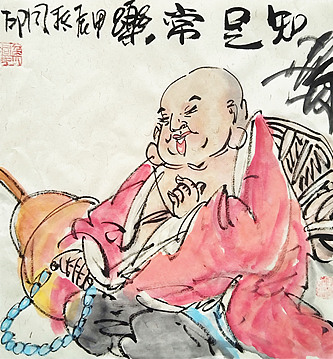 知足常樂 甲辰秋